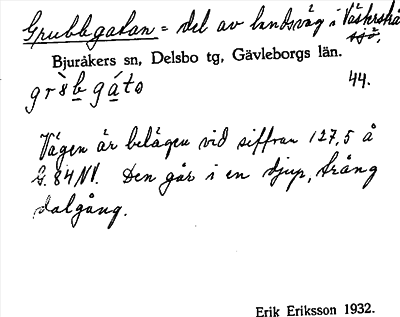 Grubbgatan = del av landsväg i Väskrskä
sjö.
Bjuråkers sn, Delsbo tg, Gävleborgs län.
grὸb gáto 44.
Vägen är belägen vid siffran 127,5 å
G. 84 NV. Den går i en djup, trång
dalgång.
Erik Eriksson 1932.